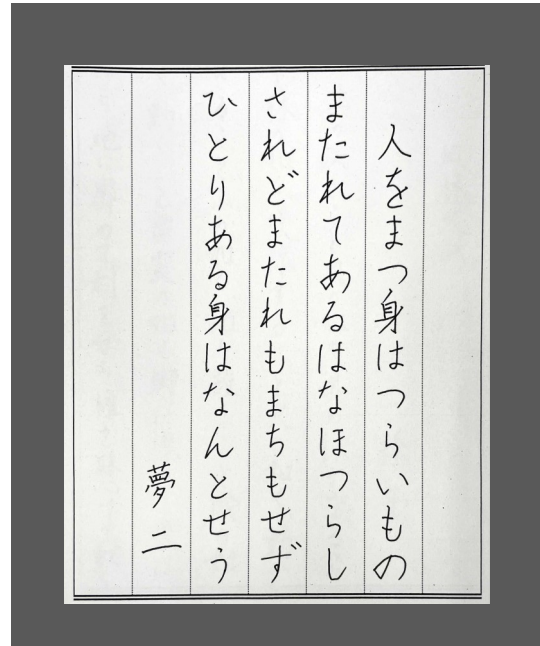 人をまつ身はつらいもの
またれてあるはなほつらし
されどまたれもまちもせず
ひとりある身はなんとせう
夢二